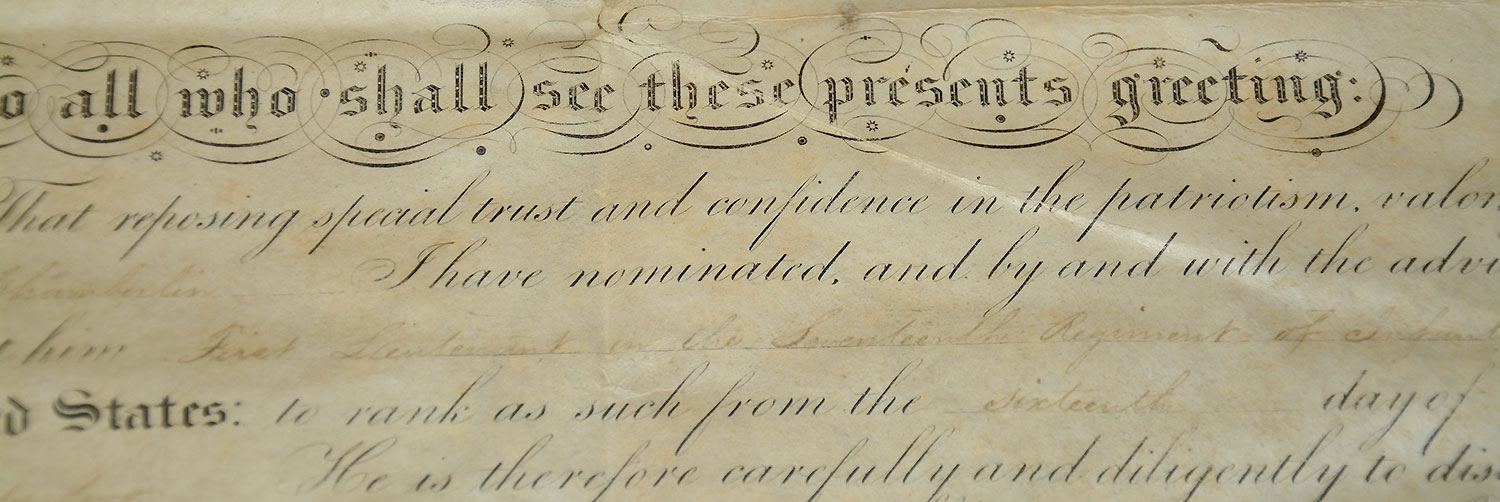 o all who shall see these presents greeting:
That reposing special trust and confidence in the patriotism, valor
Chamberlin I have nominated, and by and with the advi
t him First Lieutenant in the Seventeenth Regiment of Infant
d States: to rank as such from the sixteenth day of
He is therefore carefully and diligently to dis